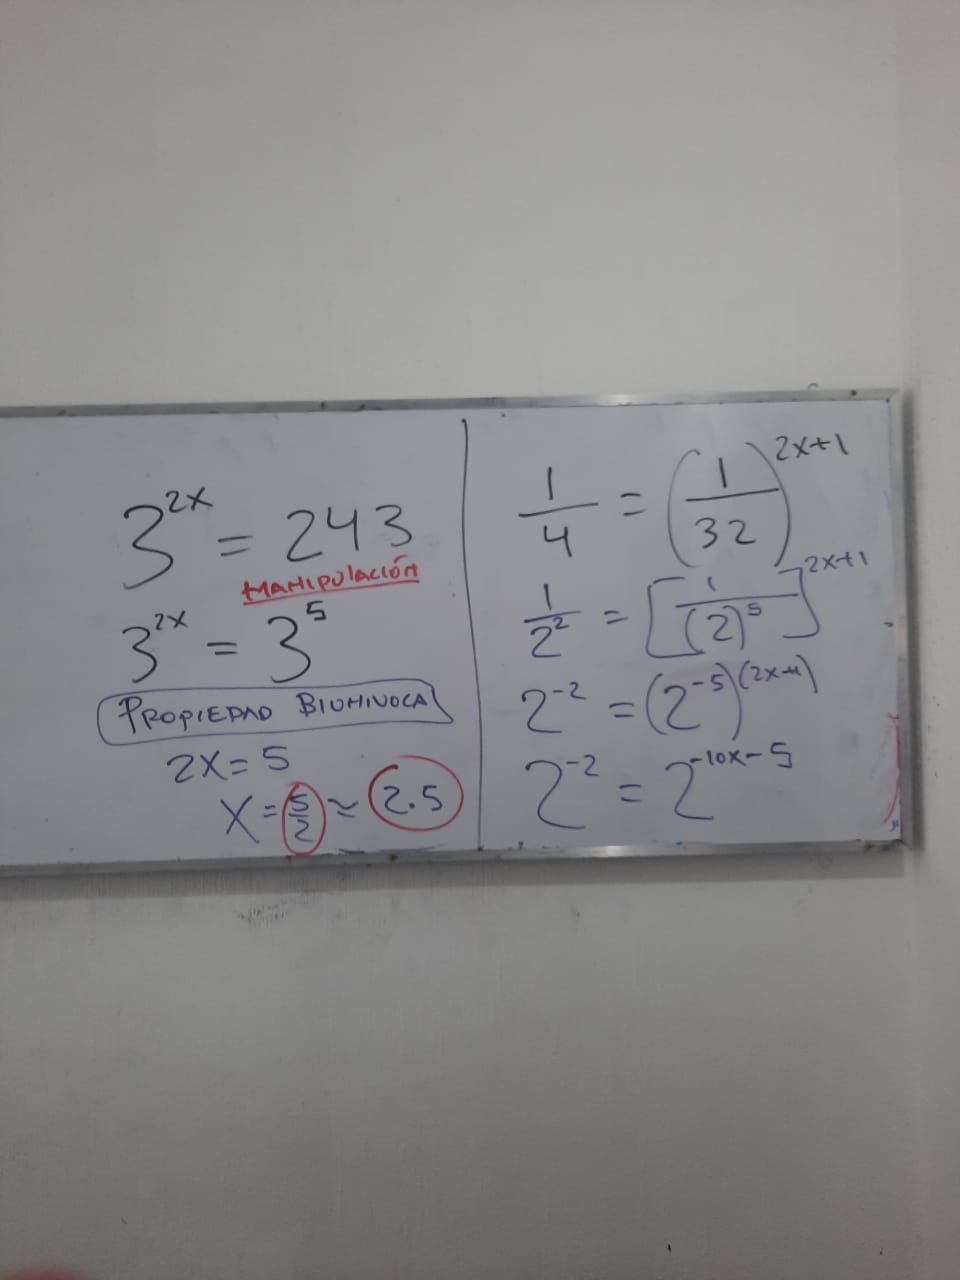 3^{2x} = 243
MANIPULACIÓN
3^{2x} = 3^5
PROPIEDAD BIUNIVOCA
2x = 5
X = 5/2 ≈ 2.5
1/4 = (1/32)^{2x+1}
1/2^2 = [1/(2)^5]^{2x+1}
2^{-2} = (2^{-5})^{(2x+1)}
2^{-2} = 2^{-10x-5}